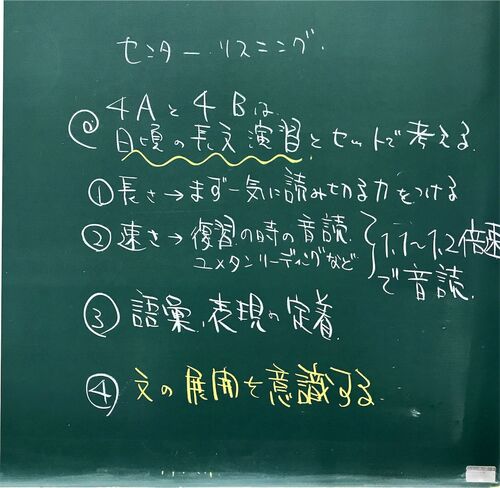 センター リスニング.
@ 4Aと4Bは
日頃の長文演習とセットで考える
①長さ→まず一気に読み切る力をつける
②速さ→復習の時の音読.
ユメタンリーディングなど
1.1〜1.2倍速
で音読.
③語彙、表現の定着
④文の展開を意識する